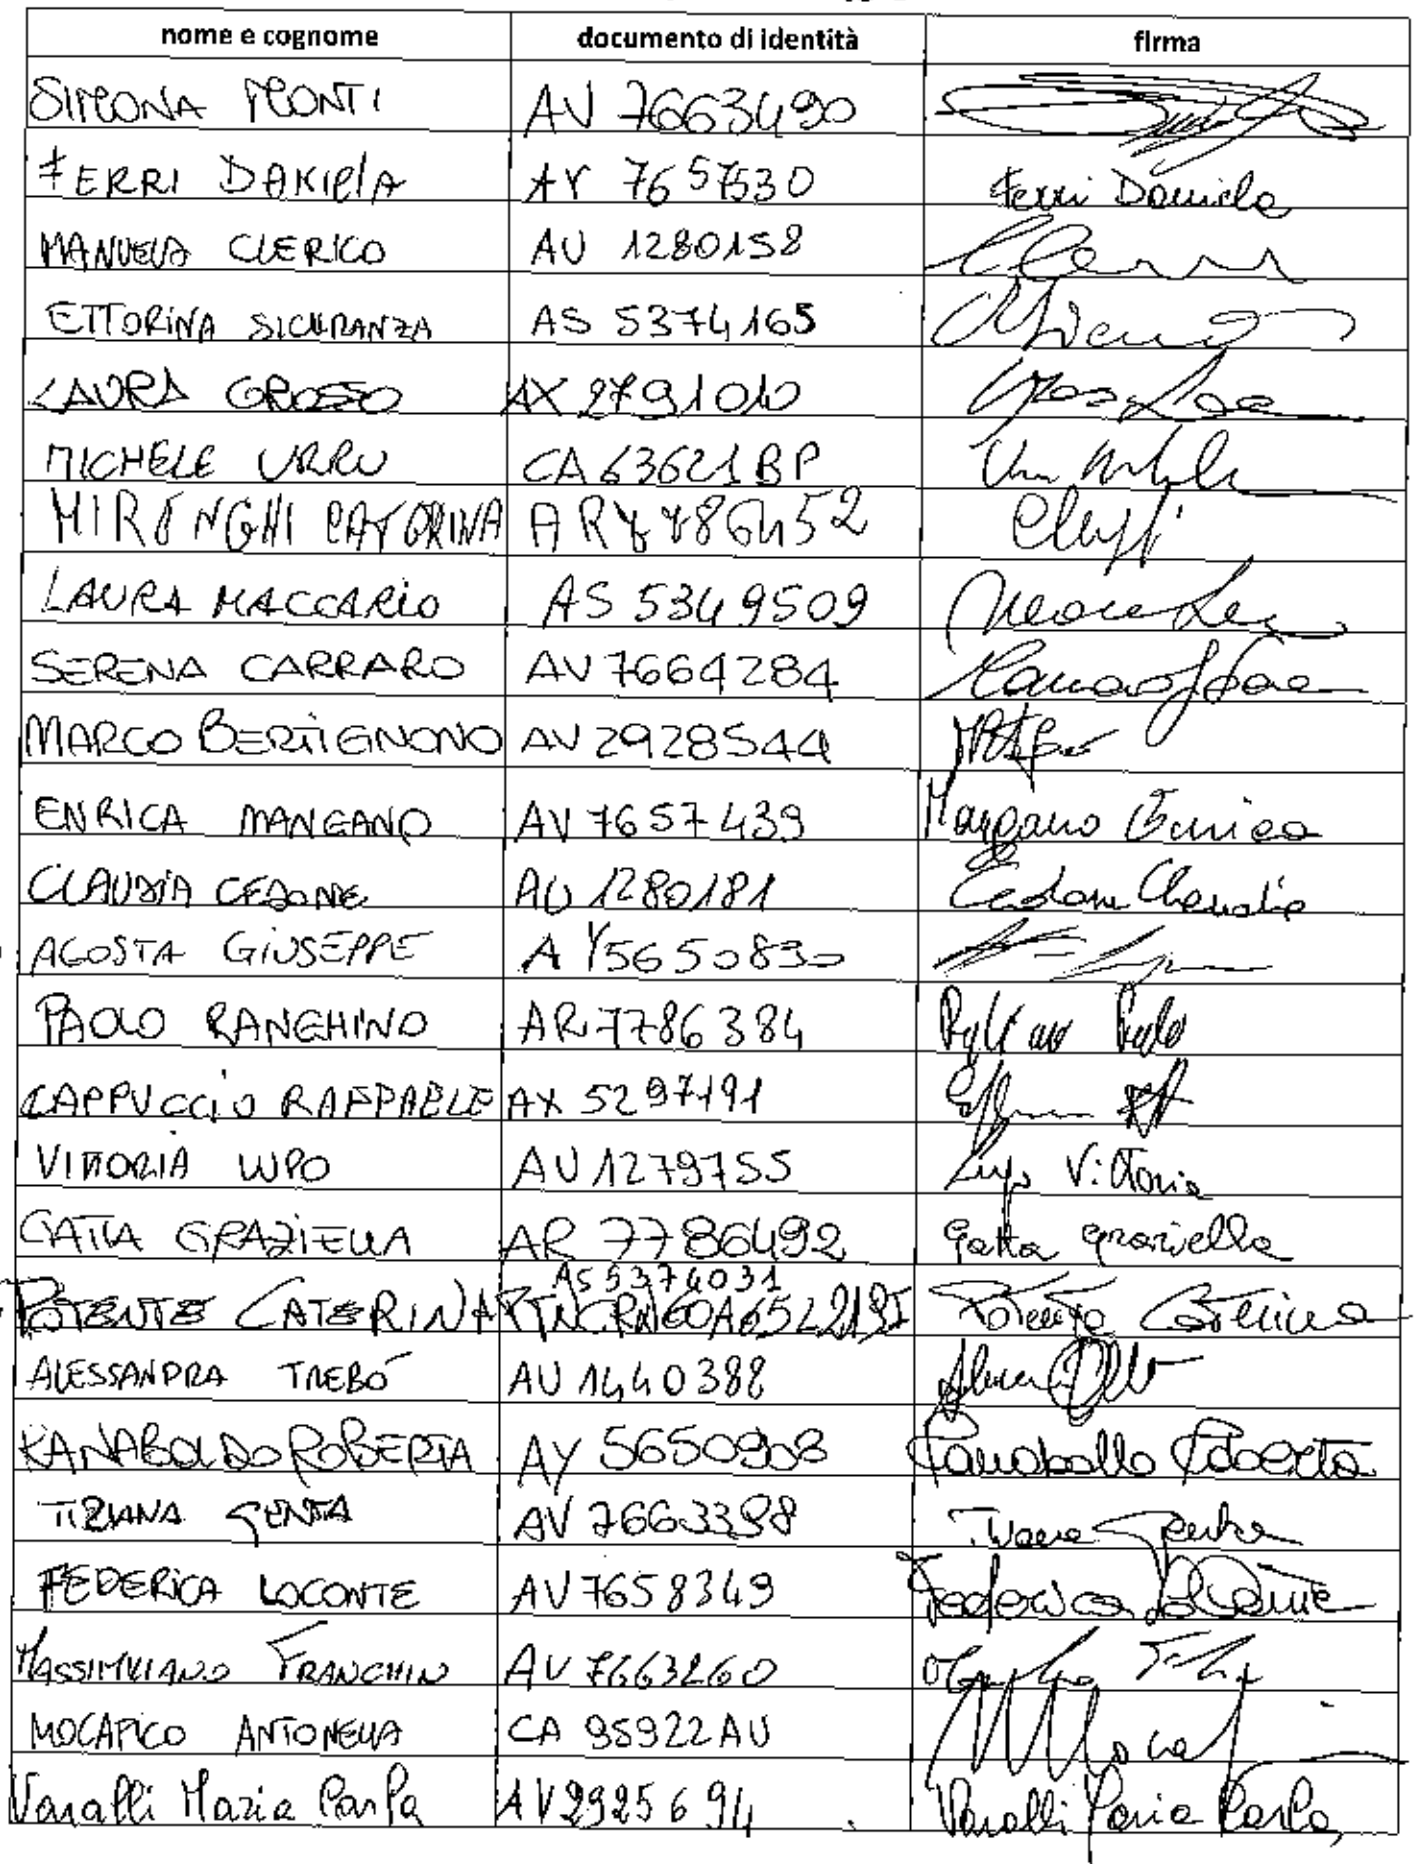 nome e cognome documento di identità firma
SIMONA MONTI AV 7663490
FERRI DANIELA AY 7657530 Ferri Daniela
MANUELA CLERICO AU 1280158
ETTORINA SICURANZA AS 5374165
LAURA GROSSO AX 2791010
MICHELE URRU CA 63621BP
MIRENGHI CATERINA AR7786452
LAURA MACCARIO AS 5349509
SERENA CARRARO AV 7664284
MARCO BERTIGNONO AV 2928544
ENRICA MANGANO AV 7657439 Mangano Enrica
CLAUDIA CEDONE AU 1280181 Cedone Claudia
AGOSTA GIUSEPPE AY5650830
PAOLO RANGHINO AR 7786384
CAPPUCCIO RAFFAELE AX 5297191
VITTORIA LUPO AU 1279755 Lupo Vittoria
GATTA GRAZIELLA AR 7786492 Gatta Graziella
AS 5374031
POTENTE CATERINA PTNCRN60A65L219I Potente Caterina
ALESSANDRA TREBÓ AU 1440388
RANABOLDO ROBERTA AY 5650908 Ranaboldo Roberta
TIZIANA GENTA AV 7663398 Tiziana Genta
FEDERICA LOCONTE AV 7658349 Federica Loconte
MASSIMILIANO FRANCHIN AV 7663260
MOCAFICO ANTONELLA CA 95922AU
Varalli Maria Carla AV2925694 Varalli Maria Carla